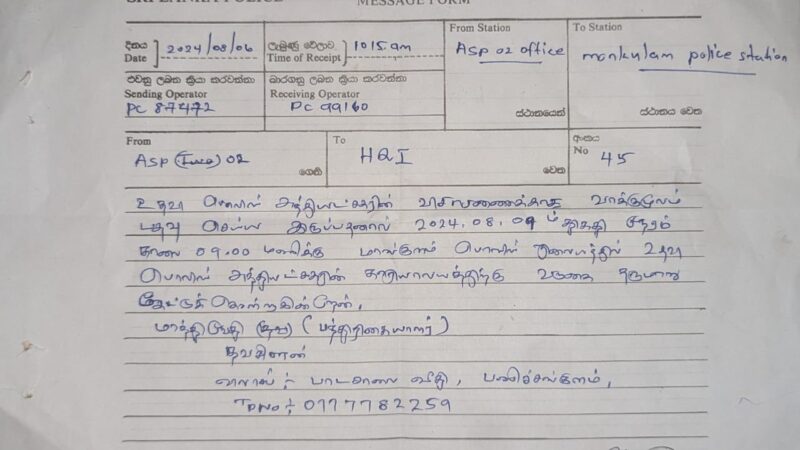 SRI LANKA POLICE
MESSAGE FORM
දිනය
Date 2024/08/06
ලැබුණු වේලාව
Time of Receipt 1015 am
From Station
ASP 02 office
ස්ථානයෙන්
To Station
mankulam police station
ස්ථානය වෙත
එවනු ලබන ක්‍රියා කරවන්නා
Sending Operator
PC 87472
භාරගනු ලබන ක්‍රියා කරවන්නා
Receiving Operator
PC 99160
From
ASP 02
ගෙනි
To
HQI
වෙත
අංකය
No 45
உதவி பொலிஸ் அத்தியட்சகரின் விசாரணைக்காக வாக்குமூலம்
பதிவு செய்ய இருப்பதனால் 2024.08.09 ம் திகதி நேரம்
காலை 09.00 மணிக்கு மாங்குளம் பொலிஸ் நிலையத்தில் உதவி
பொலிஸ் அத்தியட்சகரின் காரியாலயத்திற்கு வருகை தருமாறு
கேட்டுக் கொள்கின்றேன்.
(பத்திரிகையாளர்)
தவசீலன்
பாடசாலை வீதி,
TP No : 0777782259